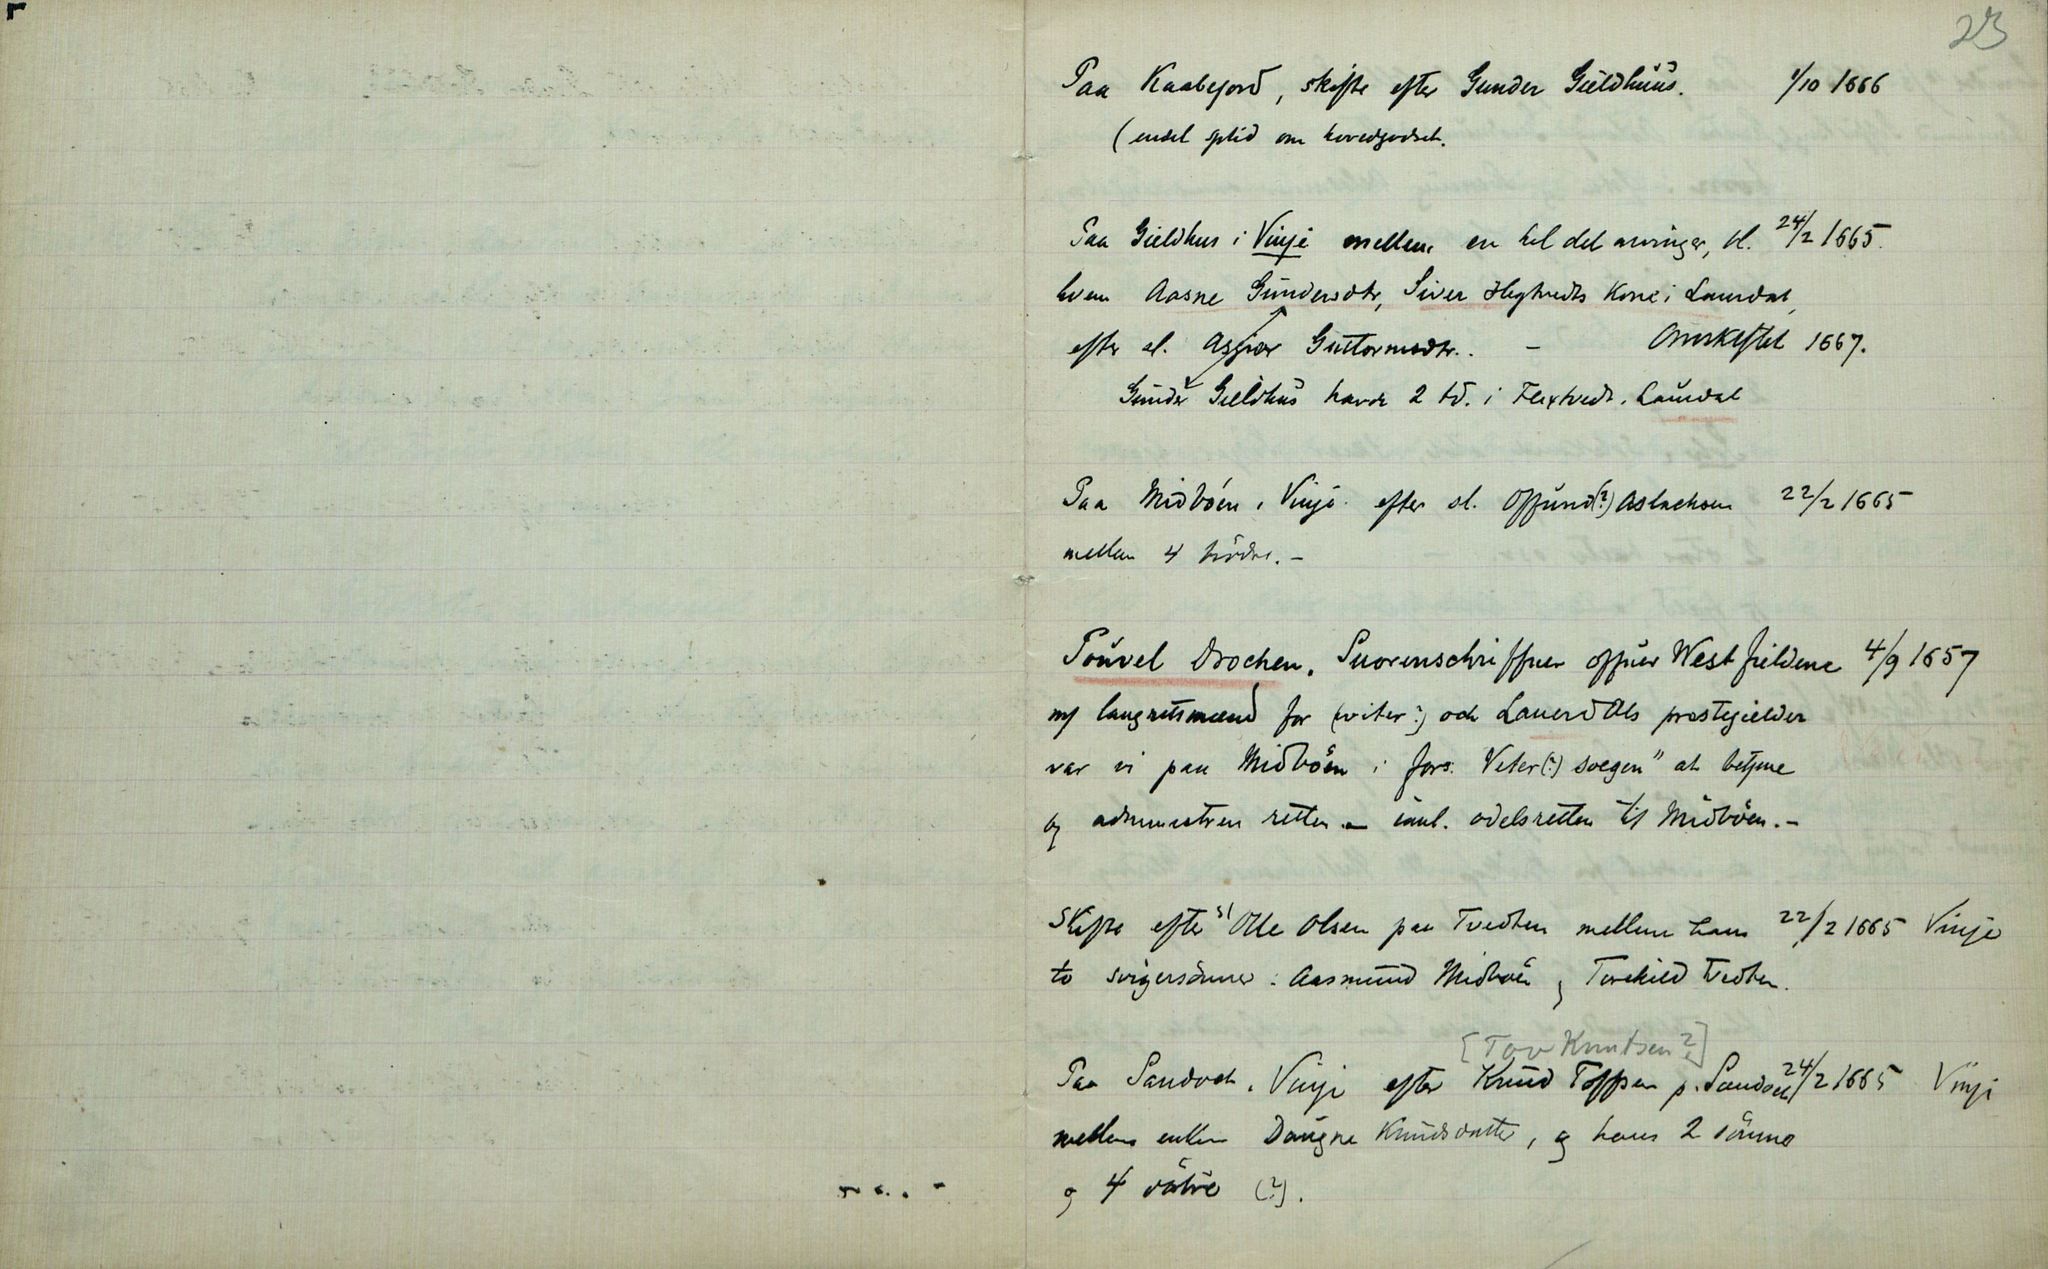 23
Paa Kaabejord, skifte efter Gunder Gieldhüüs. 1/10 1666
(endel splid om hovedgodset.
Paa Gieldhus i Vinje mellem en hel del arvinger, bl. 24/2 1665.
hvem Aasne Gündersdtr, Siver Hegtvedts Kone i Laurdal,
efter sl. Asgier Güttormsdtr. - Omskiftet 1667.
Günder Gieldhüs havde 2 td. i Flextvedt. Laürdal
Paa Midböen i Vinje efter sl. Offünd(?) Aslachsen 22/2 1665
mellem 4 brödre. -
Poüvel Brochen, Suorenschriffuer offuer Westfieldene 4/9 1657
m/ laugretsmænd for (viter?) och Lauerdals prestegielder
var vi paa Midböen i fors. Veter(?) soegen" at betjene
og administrere retten - ianl. odelsretten til Midböen. -
Skifte efter sl Olle Olsen paa Tvedten mellem hans 22/2 1665 Vinje
to svigersönner: Aasmund Midböe og Torekild Tvedten.
[Tov Knutsen?]
Paa Sandvet. Vinje efter Knüd Toffsen p. Sandvet 24/2 1665 Vinje
mellem enken Daügne Knüdsdatter, og hans 2 sönner
og 4 döttre (?).